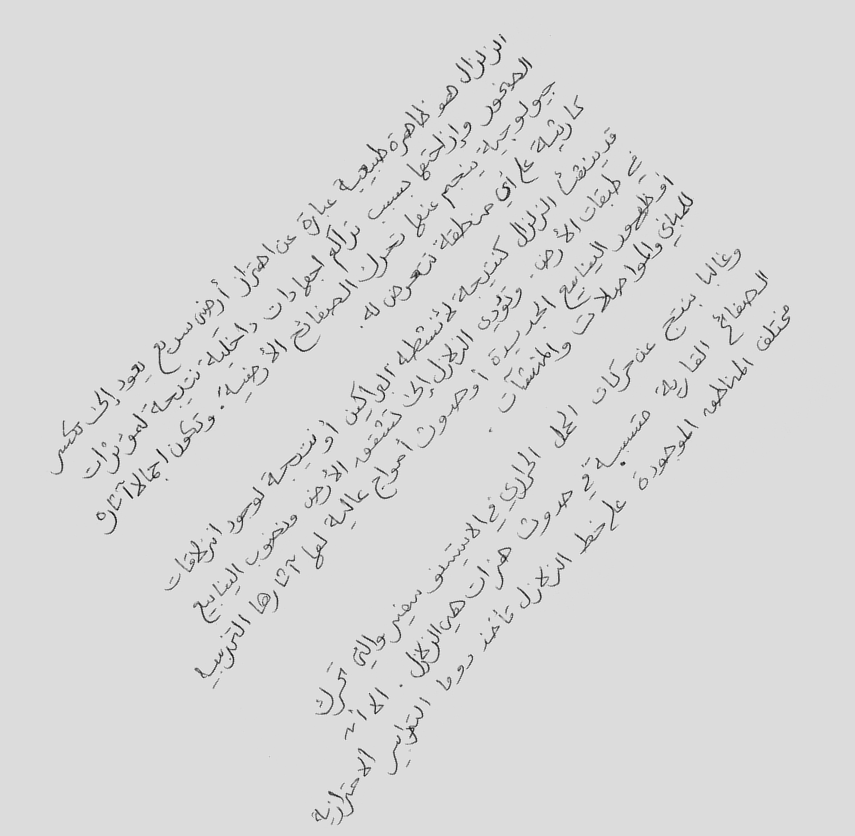 الزلزال هو ظاهرة طبيعية عبارة عن اهتزاز أرضي سريع يعود إلى تكسر
الصخور وإزاحتها بسبب تراكم اجهادات داخلية نتيجة لمؤثرات
جيولوجية ينجم عنها تحرك الصفائح الأرضية. وتكون اجمالا آثاره
كارثية على أي منطقة تتعرض له.
قد ينشأ الزلزال كنتيجة لأنشطة البراكين أو نتيجة لوجود انزلاقات
في طبقات الأرض. وتؤدي الزلازل إلى تشقق الأرض ونضوب الينابيع
أو ظهور الينابيع الجديدة أو حدوث أمواج عالية لها آثارها التخريبية
للمباني والمواصلات والمنشآت.
وغالبا ينتج عن حركات الحمل الحراري في الاستينوسفير والتي تحرك
الصفائح القارية متسببة في حدوث هزات هي الزلازل. الا أن
مختلف المناطق الموجودة على خط الزلازل تأخذ دوما التدابير الاحترازية